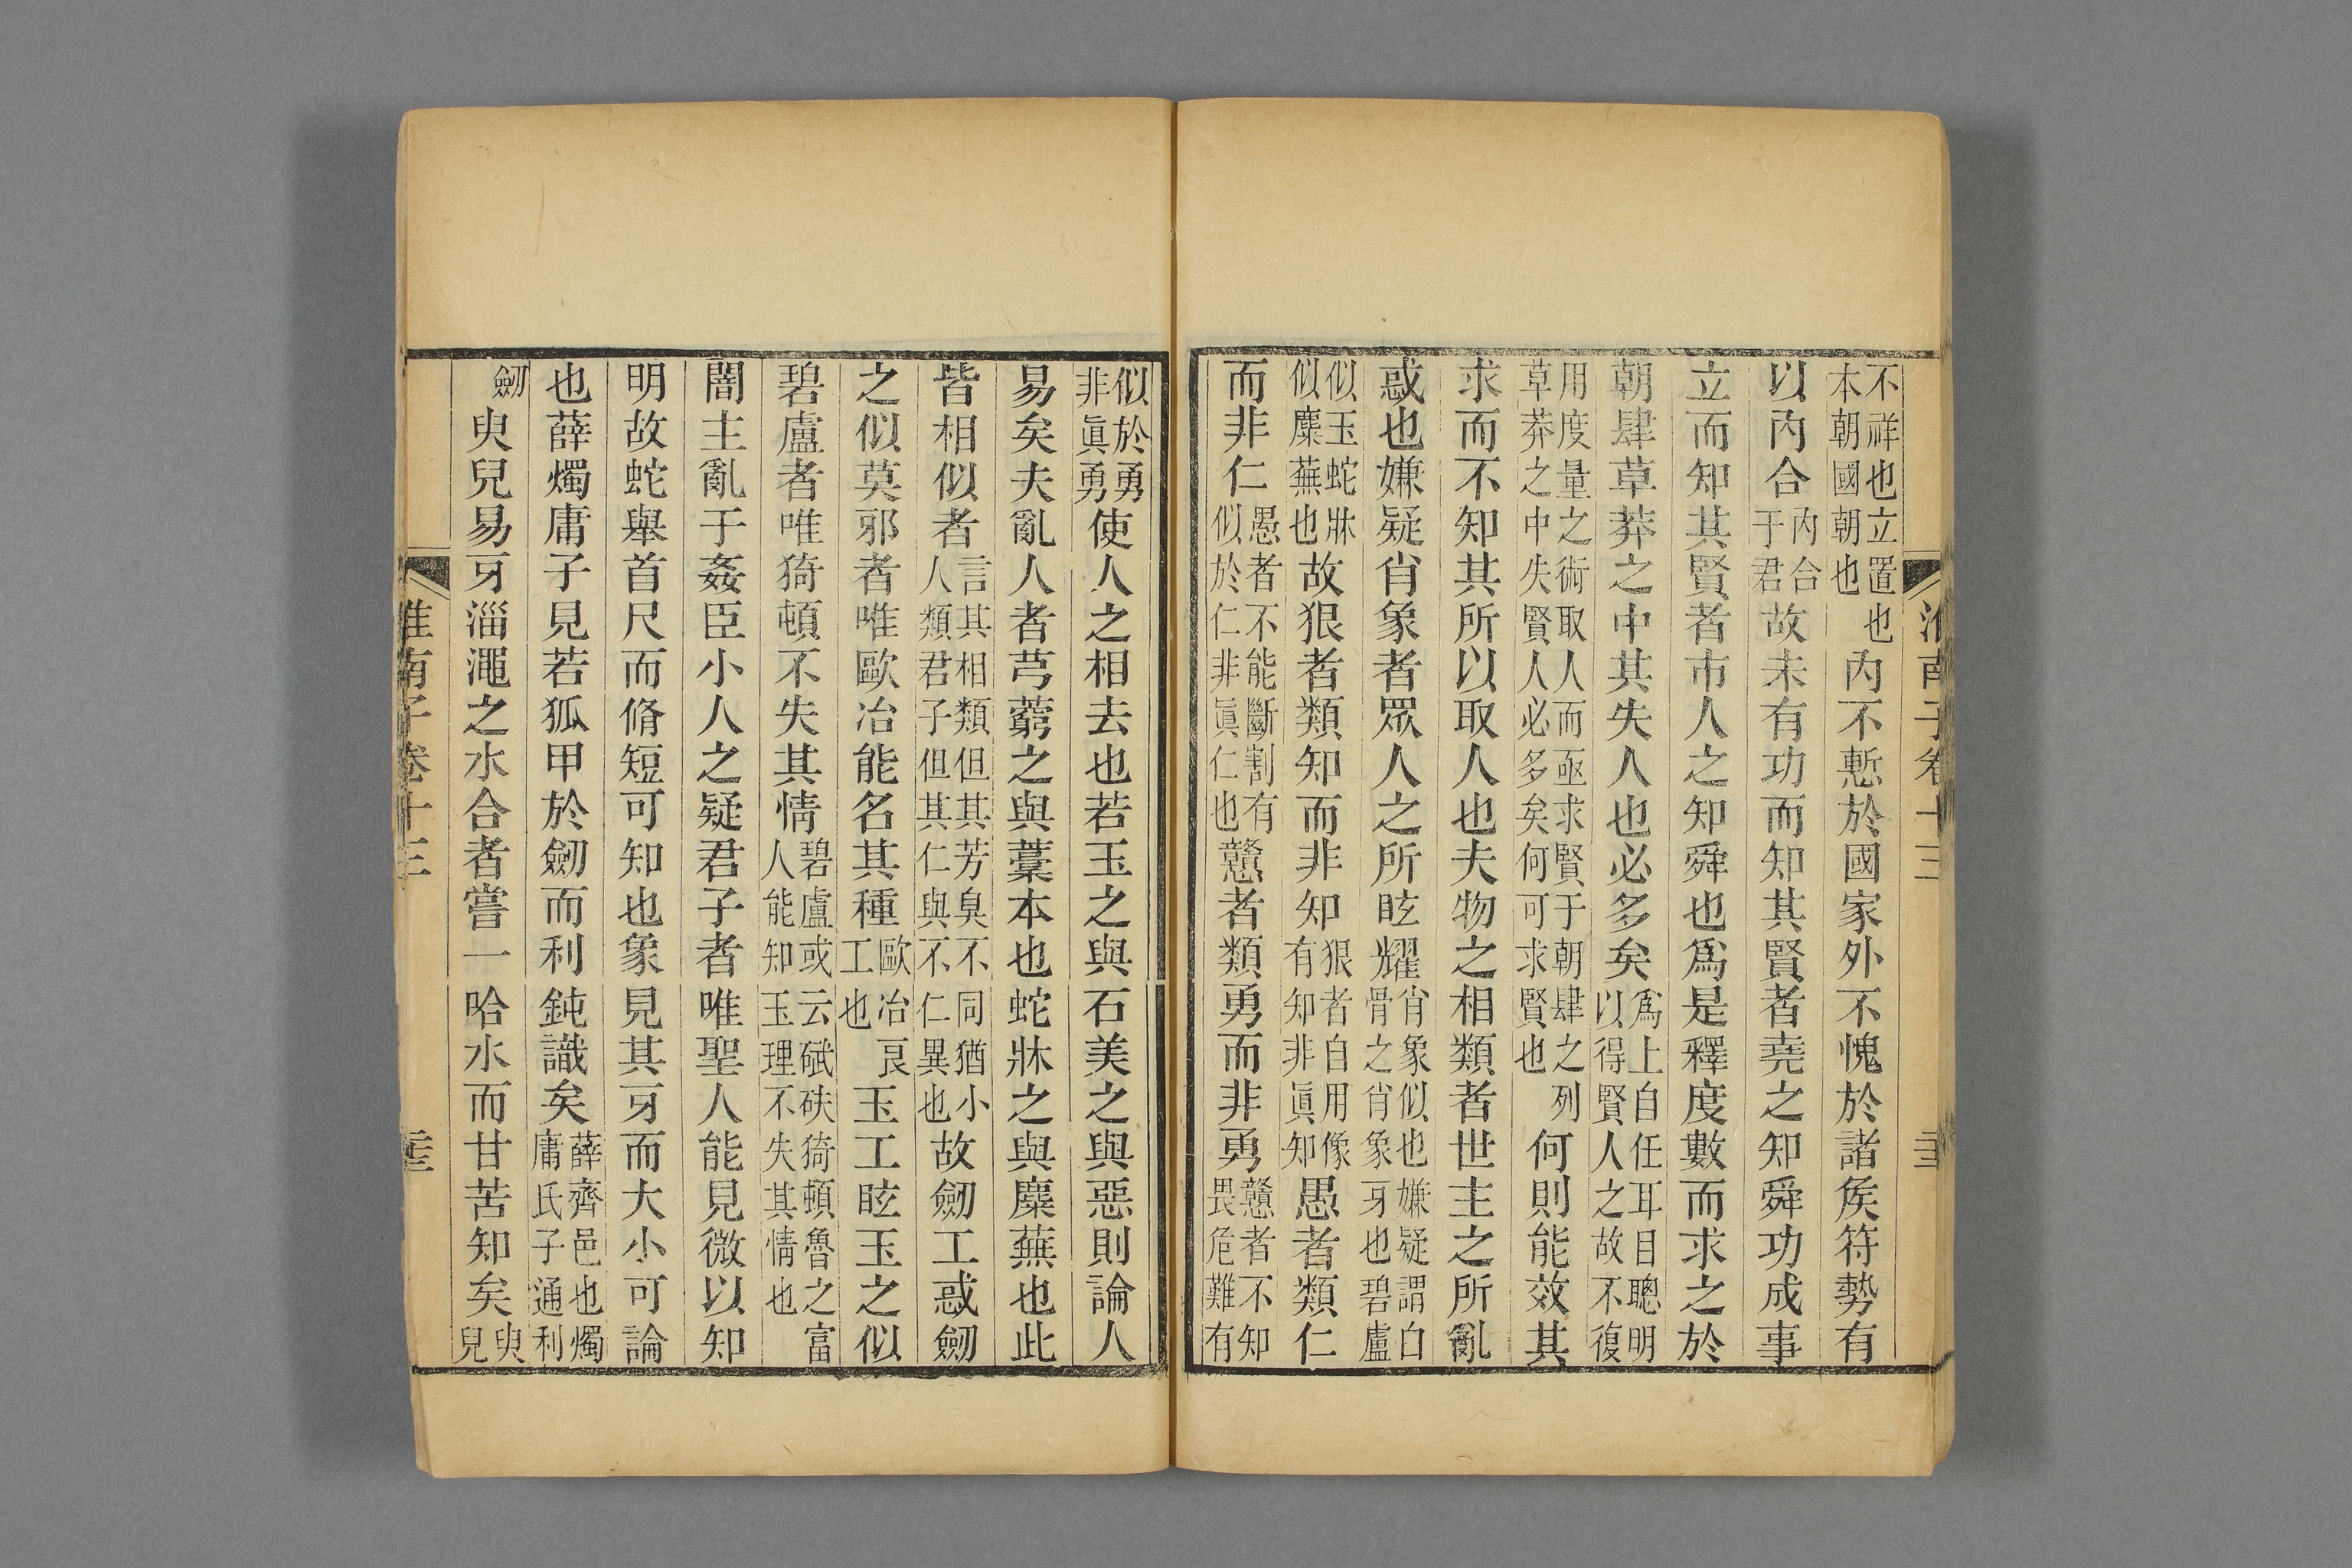 淮南子卷十三 二十二
不祥也立置也本朝國朝也內不慙於國家外不愧於諸矦符勢有
以內合內合于君故未有功而知其賢者堯之知舜功成事
立而知其賢者市人之知舜也爲是釋度數而求之於
朝肆草莽之中其失人也必多矣爲上自任耳目聰明以得賢人之故不復
用度量之術取人而亟求賢于朝肆之列草莽之中失賢人必多矣何可求賢也何則能效其
求而不知其所以取人也夫物之相類者世主之所亂
惑也嫌疑肖象者眾人之所眩耀肖象似也嫌疑謂白骨之肖象牙也碧盧
似玉蛇牀似麋蕪也故狠者類知而非知狠者自用像有知非眞知愚者類仁
而非仁愚者不能斷割有似於仁非眞仁也戇者類勇而非勇戇者不知畏危難有
似於勇非眞勇使人之相去也若玉之與石美之與惡則論人
易矣夫亂人者芎藭之與藳本也蛇牀之與麋蕪也此
皆相似者言其相類但其芳臭不同猶小人類君子但其仁與不仁異也故劒工惑劒
之似莫邪者唯歐冶能名其種歐冶良工也玉工眩玉之似
碧盧者唯猗頓不失其情碧盧或云碔砆猗頓魯之富人能知玉理不失其情也
闇主亂于姦臣小人之疑君子者唯聖人能見微以知
明故蛇舉首尺而脩短可知也象見其牙而大小可論
也薛燭庸子見若狐甲於劒而利鈍識矣薛齊邑也燭庸氏子通利
劒臾兒易牙淄澠之水合者嘗一哈水而甘苦知矣臾兒
淮南子卷十三 二十三